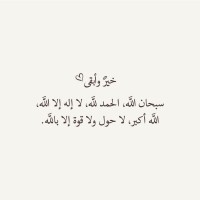 خيرٌ وأبقى
سبحان اللَّه، الحمد للَّه، لا إله إلا اللَّه،
اللَّه أكبر، لا حول ولا قوة إلا باللَّه.